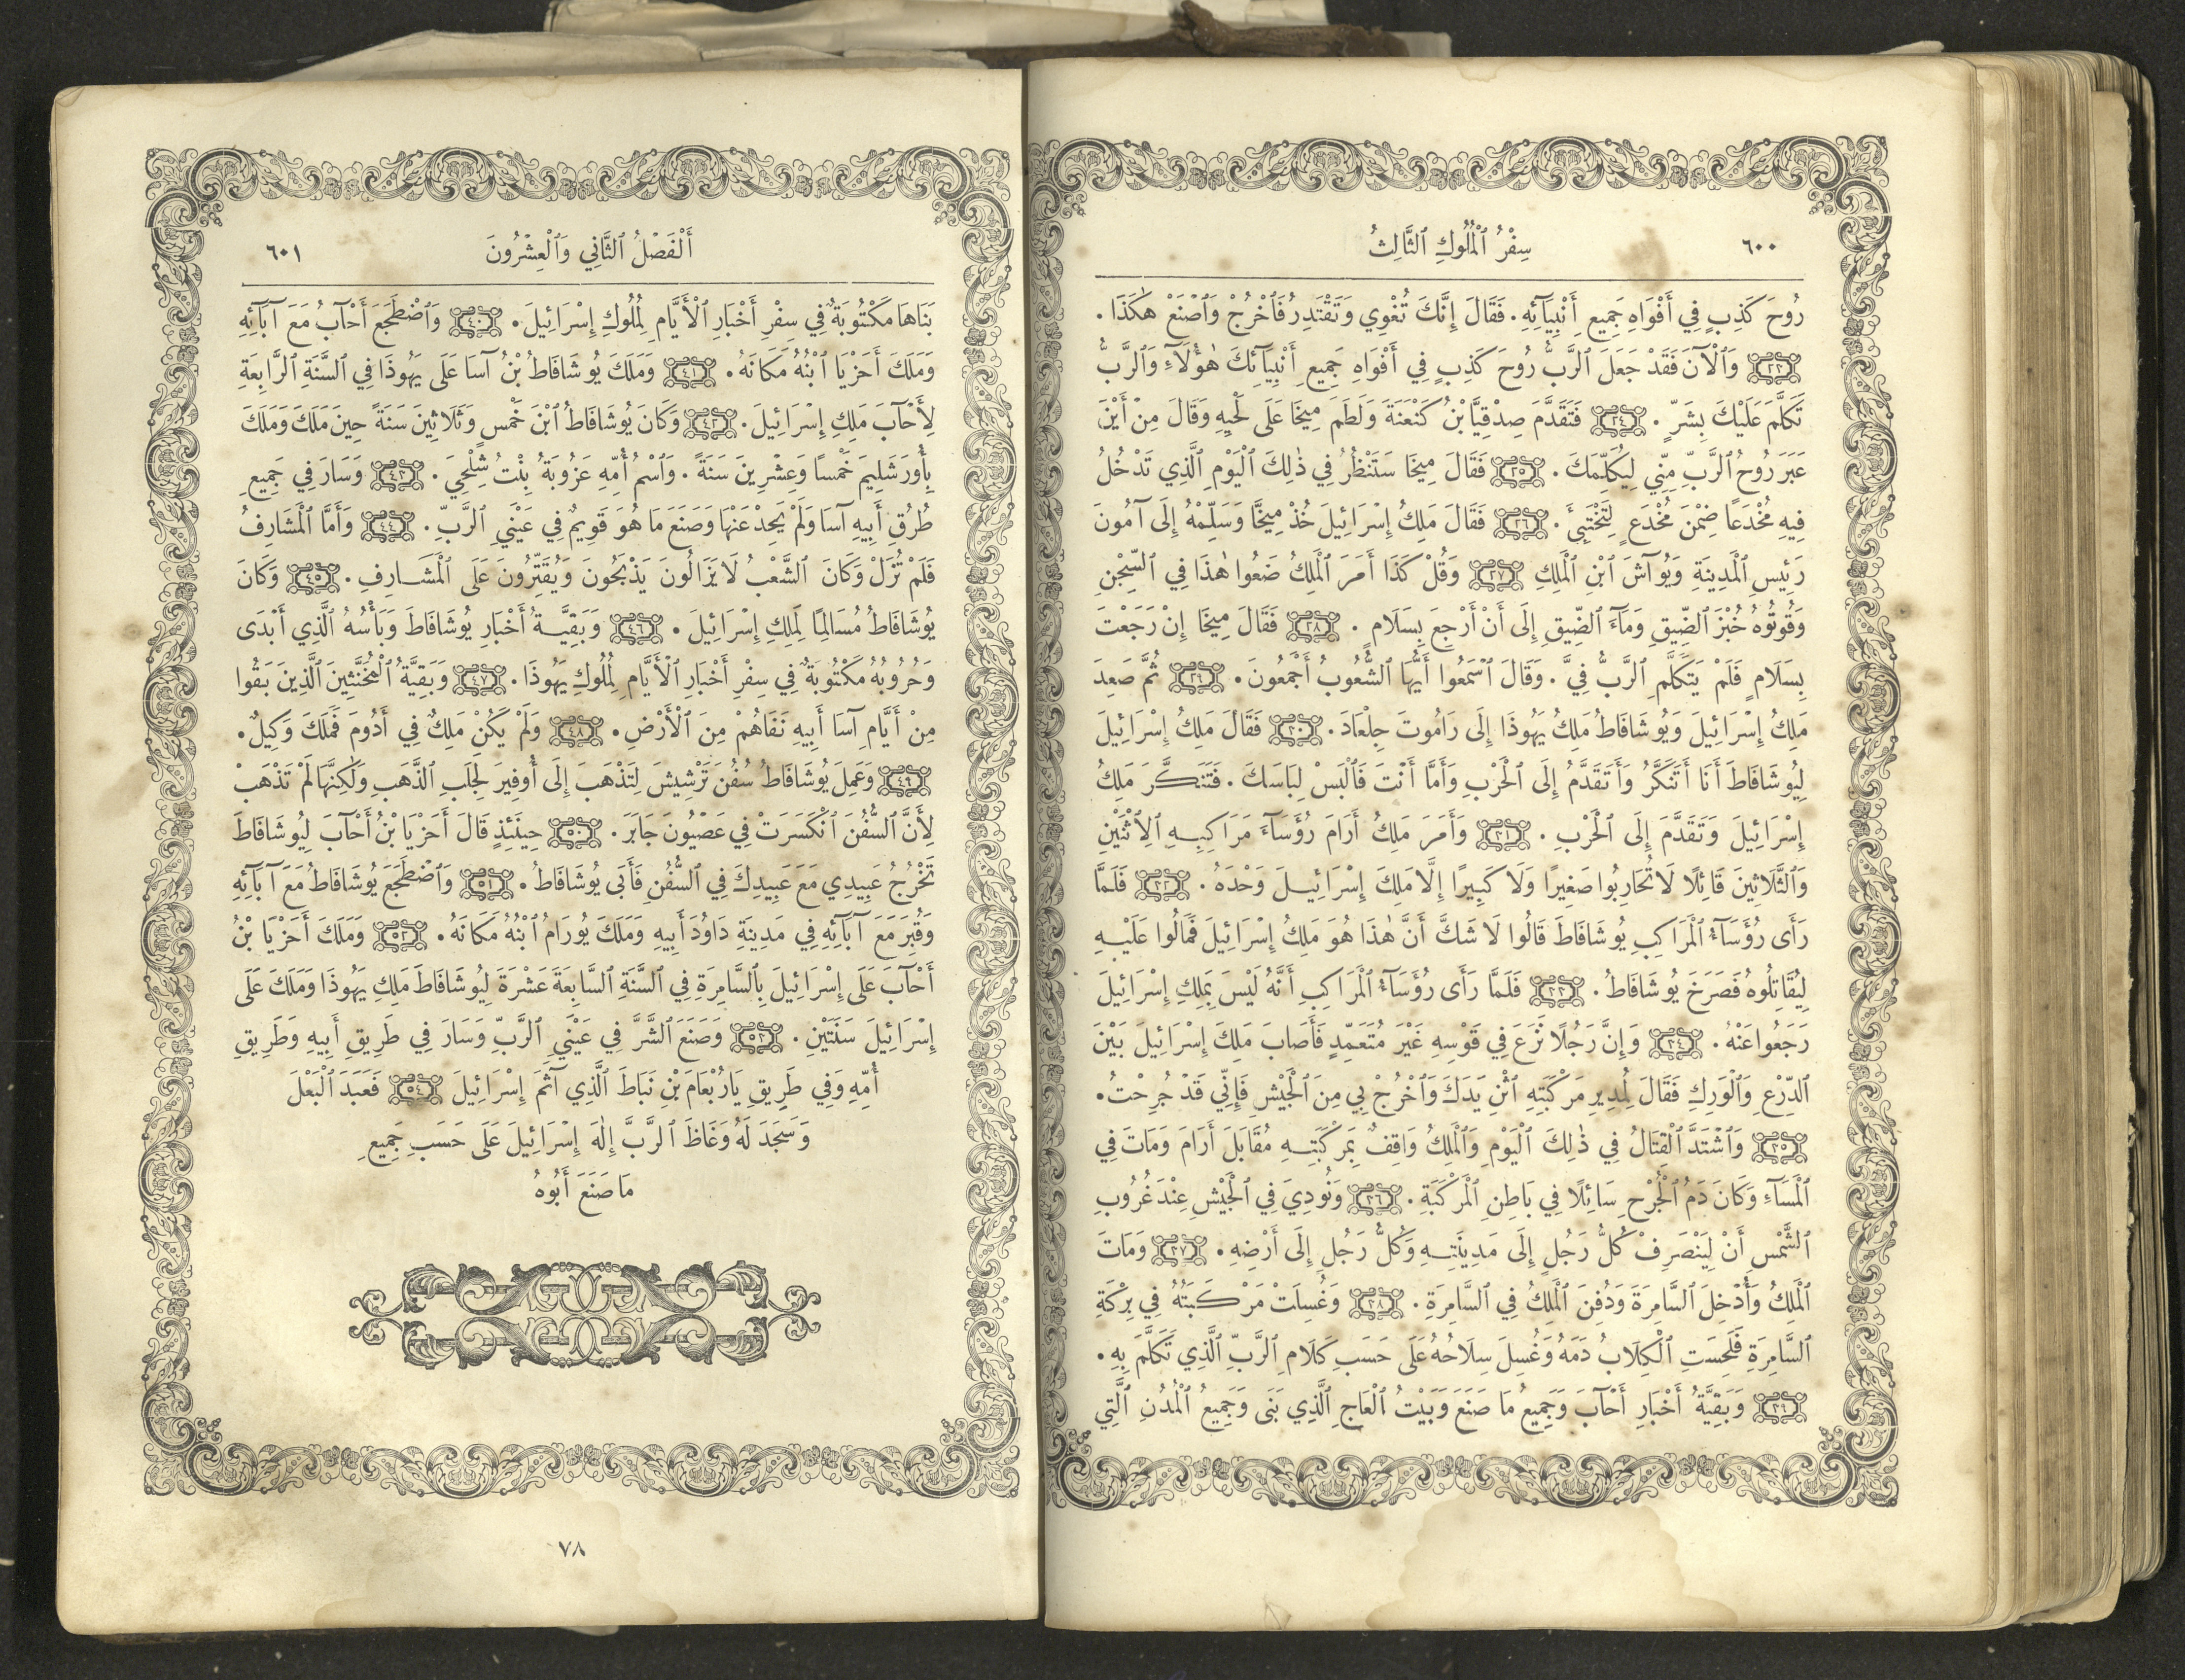 ٦٠٠ سِفْرُ ٱلْمُلُوكِ ٱلثَّالِثُ
رُوحَ كَذِبٍ فِي أَفْوَاهِ جَمِيعِ أَنْبِيَآئِهِ. فَقَالَ إِنَّكَ تُغْوِي وَتَقْتَدِرُ فَٱخْرُجْ وَٱصْنَعْ هٰكَذَا.
٢٣ وَٱلْآنَ فَقَدْ جَعَلَ ٱلرَّبُّ رُوحَ كَذِبٍ فِي أَفْوَاهِ جَمِيعِ أَنْبِيَآئِكَ هٰؤُلَآءِ وَٱلرَّبُّ
تَكَلَّمَ عَلَيْكَ بِشَرٍّ. ٢٤ فَتَقَدَّمَ صِدْقِيَّا بْنُ كَنْعَنَةَ وَلَطَمَ مِيخَا عَلَى لَحْيِهِ وَقَالَ مِنْ أَيْنَ
عَبَرَ رُوحُ ٱلرَّبِّ مِنِّي لِيُكَلِّمَكَ. ٢٥ فَقَالَ مِيخَا سَتَنْظُرُ فِي ذٰلِكَ ٱلْيَوْمِ ٱلَّذِي تَدْخُلُ
فِيهِ مُخْدَعًا ضِمْنَ مُخْدَعٍ لِتَخْتَبِئَ. ٢٦ فَقَالَ مَلِكُ إِسْرَائِيلَ خُذْ مِيخَا وَسَلِّمْهُ إِلَى آمُونَ
رَئِيسِ ٱلْمَدِينَةِ وَيُوآشَ ٱبْنِ ٱلْمَلِكِ ٢٧ وَقُلْ كَذَا أَمَرَ ٱلْمَلِكُ ضَعُوا هٰذَا فِي ٱلسِّجْنِ
وَقُوتُوهُ خُبْزَ ٱلضِّيقِ وَمَآءَ ٱلضِّيقِ إِلَى أَنْ أَرْجِعَ بِسَلَامٍ. ٢٨ فَقَالَ مِيخَا إِنْ رَجَعْتَ
بِسَلَامٍ فَلَمْ يَتَكَلَّمِ ٱلرَّبُّ فِيَّ. وَقَالَ ٱسْمَعُوا أَيُّهَا ٱلشُّعُوبُ أَجْمَعُونَ. ٢٩ ثُمَّ صَعِدَ
مَلِكُ إِسْرَائِيلَ وَيُوشَافَاطُ مَلِكُ يَهُوذَا إِلَى رَامُوتَ جِلْعَادَ. ٣٠ فَقَالَ مَلِكُ إِسْرَائِيلَ
لِيُوشَافَاطَ أَنَا أَتَنَكَّرُ وَأَتَقَدَّمُ إِلَى ٱلْحَرْبِ وَأَمَّا أَنْتَ فَٱلْبَسْ لِبَاسَكَ. فَتَنَكَّرَ مَلِكُ
إِسْرَائِيلَ وَتَقَدَّمَ إِلَى ٱلْحَرْبِ. ٣١ وَأَمَرَ مَلِكُ أَرَامَ رُؤَسَآءَ مَرَاكِبِهِ ٱلِٱثْنَيْنِ
وَٱلثَّلَاثِينَ قَائِلًا لَا تُحَارِبُوا صَغِيرًا وَلَا كَبِيرًا إِلَّا مَلِكَ إِسْرَائِيلَ وَحْدَهُ. ٣٢ فَلَمَّا
رَأَى رُؤَسَآءُ ٱلْمَرَاكِبِ يُوشَافَاطَ قَالُوا لَا شَكَّ أَنَّ هٰذَا هُوَ مَلِكُ إِسْرَائِيلَ فَمَالُوا عَلَيْهِ
لِيُقَاتِلُوهُ فَصَرَخَ يُوشَافَاطُ. ٣٣ فَلَمَّا رَأَى رُؤَسَآءُ ٱلْمَرَاكِبِ أَنَّهُ لَيْسَ بِمَلِكِ إِسْرَائِيلَ
رَجَعُوا عَنْهُ. ٣٤ وَإِنَّ رَجُلًا نَزَعَ فِي قَوْسِهِ غَيْرَ مُتَعَمِّدٍ فَأَصَابَ مَلِكَ إِسْرَائِيلَ بَيْنَ
ٱلدِّرْعِ وَٱلْوَرِكِ فَقَالَ لِمُدِيرِ مَرْكَبَتِهِ ٱثْنِ يَدَكَ وَٱخْرُجْ بِي مِنَ ٱلْجَيْشِ فَإِنِّي قَدْ جُرِحْتُ.
٣٥ وَٱشْتَدَّ ٱلْقِتَالُ فِي ذٰلِكَ ٱلْيَوْمِ وَٱلْمَلِكُ وَاقِفٌ بِمَرْكَبَتِهِ مُقَابَلَ أَرَامَ وَمَاتَ فِي
ٱلْمَسَآءِ وَكَانَ دَمُ ٱلْجُرْحِ سَائِلًا فِي بَاطِنِ ٱلْمَرْكَبَةِ. ٣٦ وَنُودِيَ فِي ٱلْجَيْشِ عِنْدَ غُرُوبِ
ٱلشَّمْسِ أَنْ لِيَنْصَرِفْ كُلُّ رَجُلٍ إِلَى مَدِينَتِهِ وَكُلُّ رَجُلٍ إِلَى أَرْضِهِ. ٣٧ وَمَاتَ
ٱلْمَلِكُ وَأُدْخِلَ ٱلسَّامِرَةَ وَدُفِنَ ٱلْمَلِكُ فِي ٱلسَّامِرَةِ. ٣٨ وَغُسِلَتْ مَرْكَبَتُهُ فِي بِرْكَةِ
ٱلسَّامِرَةِ فَلَحِسَتِ ٱلْكِلَابُ دَمَهُ وَغُسِلَ سِلَاحُهُ عَلَى حَسَبِ كَلَامِ ٱلرَّبِّ ٱلَّذِي تَكَلَّمَ بِهِ.
٣٩ وَبَقِيَّةُ أَخْبَارِ أَحْآبَ وَجَمِيعُ مَا صَنَعَ وَبَيْتُ ٱلْعَاجِ ٱلَّذِي بَنَى وَجَمِيعُ ٱلْمُدُنِ ٱلَّتِي
أَلْفَصْلُ ٱلثَّانِي وَٱلْعِشْرُونَ ٦٠١
بَنَاهَا مَكْتُوبَةٌ فِي سِفْرِ أَخْبَارِ ٱلْأَيَّامِ لِمُلُوكِ إِسْرَائِيلَ. ٤٠ وَٱضْطَجَعَ أَحْآبُ مَعَ آبَآئِهِ
وَمَلَكَ أَحَزْيَا ٱبْنُهُ مَكَانَهُ. ٤١ وَمَلَكَ يُوشَافَاطُ بْنُ آسَا عَلَى يَهُوذَا فِي ٱلسَّنَةِ ٱلرَّابِعَةِ
لِأَحْآبَ مَلِكِ إِسْرَائِيلَ. ٤٢ وَكَانَ يُوشَافَاطُ ٱبْنَ خَمْسٍ وَثَلَاثِينَ سَنَةً حِينَ مَلَكَ وَمَلَكَ
بِأُورَشَلِيمَ خَمْسًا وَعِشْرِينَ سَنَةً. وَٱسْمُ أُمِّهِ عَزُوبَةُ بِنْتُ شِلْحِيَ. ٤٣ وَسَارَ فِي جَمِيعِ
طُرُقِ أَبِيهِ آسَا وَلَمْ يَحِدْ عَنْهَا وَصَنَعَ مَا هُوَ قَوِيمٌ فِي عَيْنَيِ ٱلرَّبِّ. ٤٤ وَأَمَّا ٱلْمَشَارِفُ
فَلَمْ تُزَلْ وَكَانَ ٱلشَّعْبُ لَا يَزَالُونَ يَذْبَحُونَ وَيُقَتِّرُونَ عَلَى ٱلْمَشَارِفِ. ٤٥ وَكَانَ
يُوشَافَاطُ مُسَالِمًا لِمَلِكِ إِسْرَائِيلَ. ٤٦ وَبَقِيَّةُ أَخْبَارِ يُوشَافَاطَ وَبَأْسُهُ ٱلَّذِي أَبْدَى
وَحُرُوبُهُ مَكْتُوبَةٌ فِي سِفْرِ أَخْبَارِ ٱلْأَيَّامِ لِمُلُوكِ يَهُوذَا. ٤٧ وَبَقِيَّةُ ٱلْمُخَنَّثِينَ ٱلَّذِينَ بَقُوا
مِنْ أَيَّامِ آسَا أَبِيهِ نَفَاهُمْ مِنَ ٱلْأَرْضِ. ٤٨ وَلَمْ يَكُنْ مَلِكٌ فِي أَدُومَ فَمَلَكَ وَكِيلٌ.
٤٩ وَعَمِلَ يُوشَافَاطُ سُفُنَ تَرْشِيشَ لِتَذْهَبَ إِلَى أُوفِيرَ لِجَلَبِ ٱلذَّهَبِ وَلٰكِنَّهَا لَمْ تَذْهَبْ
لِأَنَّ ٱلسُّفُنَ ٱنْكَسَرَتْ فِي عَصْيُونَ جَابَرَ. ٥٠ حِينَئِذٍ قَالَ أَحَزْيَا بْنُ أَحْآبَ لِيُوشَافَاطَ
تَخْرُجُ عَبِيدِي مَعَ عَبِيدِكَ فِي ٱلسُّفُنِ فَأَبَى يُوشَافَاطُ. ٥١ وَٱضْطَجَعَ يُوشَافَاطُ مَعَ آبَآئِهِ
وَقُبِرَ مَعَ آبَآئِهِ فِي مَدِينَةِ دَاوُدَ أَبِيهِ وَمَلَكَ يُورَامُ ٱبْنُهُ مَكَانَهُ. ٥٢ وَمَلَكَ أَحَزْيَا بْنُ
أَحْآبَ عَلَى إِسْرَائِيلَ بِٱلسَّامِرَةِ فِي ٱلسَّنَةِ ٱلسَّابِعَةَ عَشْرَةَ لِيُوشَافَاطَ مَلِكِ يَهُوذَا وَمَلَكَ عَلَى
إِسْرَائِيلَ سَنَتَيْنِ. ٥٣ وَصَنَعَ ٱلشَّرَّ فِي عَيْنَيِ ٱلرَّبِّ وَسَارَ فِي طَرِيقِ أَبِيهِ وَطَرِيقِ
أُمِّهِ وَفِي طَرِيقِ يَارُبْعَامَ بْنِ نَبَاطَ ٱلَّذِي آثَمَ إِسْرَائِيلَ ٥٤ فَعَبَدَ ٱلْبَعْلَ
وَسَجَدَ لَهُ وَغَاظَ ٱلرَّبَّ إِلٰهَ إِسْرَائِيلَ عَلَى حَسَبِ جَمِيعِ
مَا صَنَعَ أَبُوهُ
٧٨